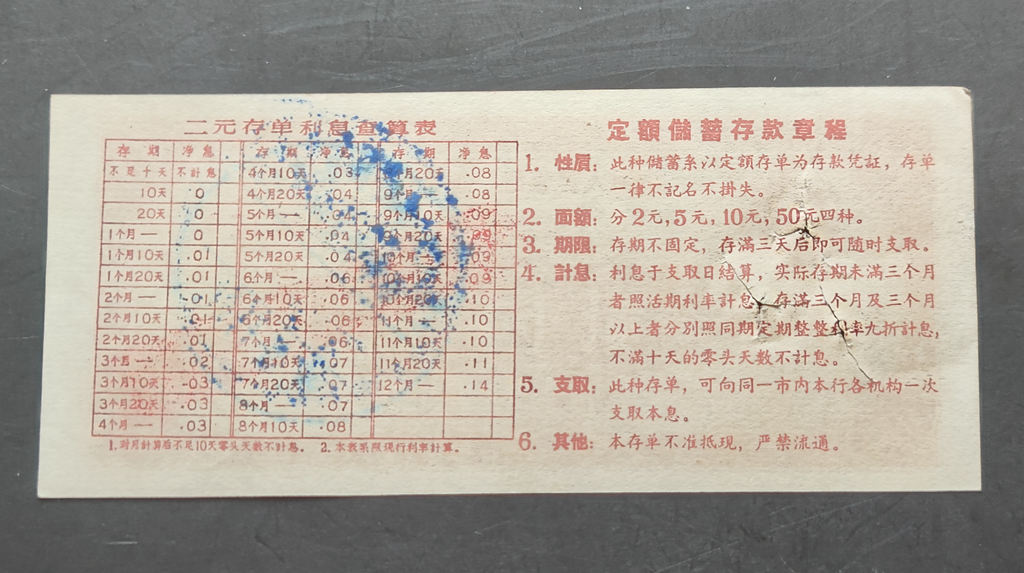 二元存单利息查算表
存 期 净息 存 期 净息 存 期 净息
不足十天 不計息 4个月10天 .03 月20天 .08
10天 0 4个月20天 .04 9个月— .08
20天 0 5个月— .04 9个月10天 .09
1个月— 0 5个月10天 .04 个月20天 .09
1个月10天 .01 5个月20天 .04 10个月— .09
1个月20天 .01 6个月— .06 10个月10天 .09
2个月— .01 6个月10天 .06 10个月20天 .10
2个月10天 .01 6个月20天 .06 11个月— .10
2个月20天 .01 7个月— .06 11个月10天 .10
3个月— .02 7个月10天 .07 11个月20天 .11
3个月10天 .03 7个月20天 .07 12个月— .14
3个月20天 .03 8个月— .07
4个月— .03 8个月10天 .08
1.对月計算后不足10天零头天數不計息。 2.本表系照現行利率計算。
定額儲蓄存款章程
1. 性質：此种儲蓄系以定額存单为存款凭証，存单
一律不記名不掛失。
2. 面額：分2元，5元，10元，50元四种。
3. 期限：存期不固定，存滿三天后即可随时支取。
4. 計息：利息于支取日結算，实际存期未滿三个月
者照活期利率計息，存滿三个月及三个月
以上者分別照同期定期整整利率九折計息，
不滿十天的零头天數不計息。
5. 支取：此种存单，可向同一市内本行各机构一次
支取本息。
6. 其他：本存单不准抵現，严禁流通。